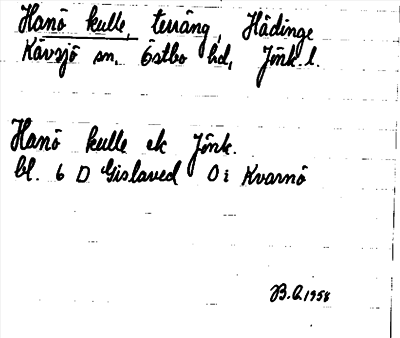 Hanö kulle, terräng, Hådinge
Kävsjö sn, Östbo hd, Jönk. l.
Hanö kulle ek Jönk.
bl. 6 D Gislaved O: Kvarnö
B.A. 1958